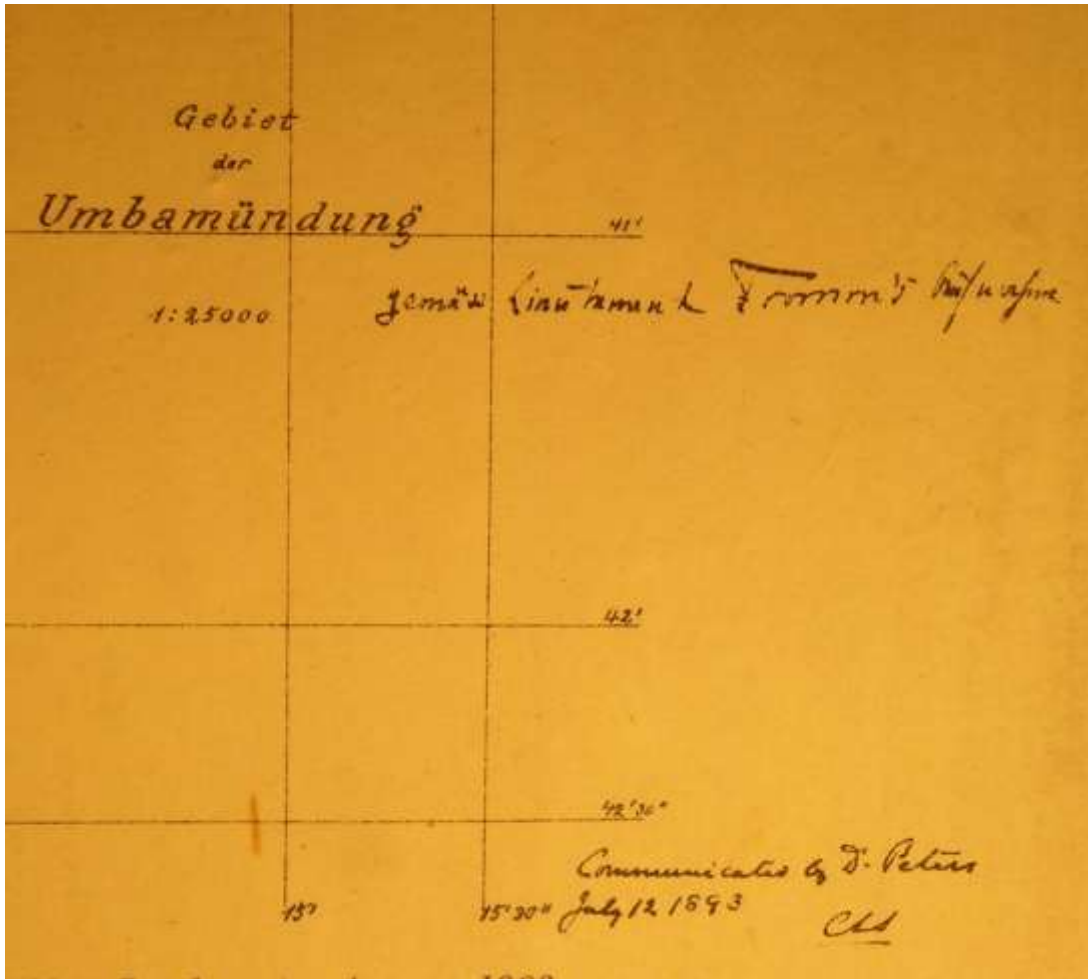 Gebiet
der
Umbamündung
41'
1:25000
gemäß Lieutenant Fromm's Aufnahme
42'
42'30"
Communicated by Dr. Peters
15'
15'30"
July 12 1893